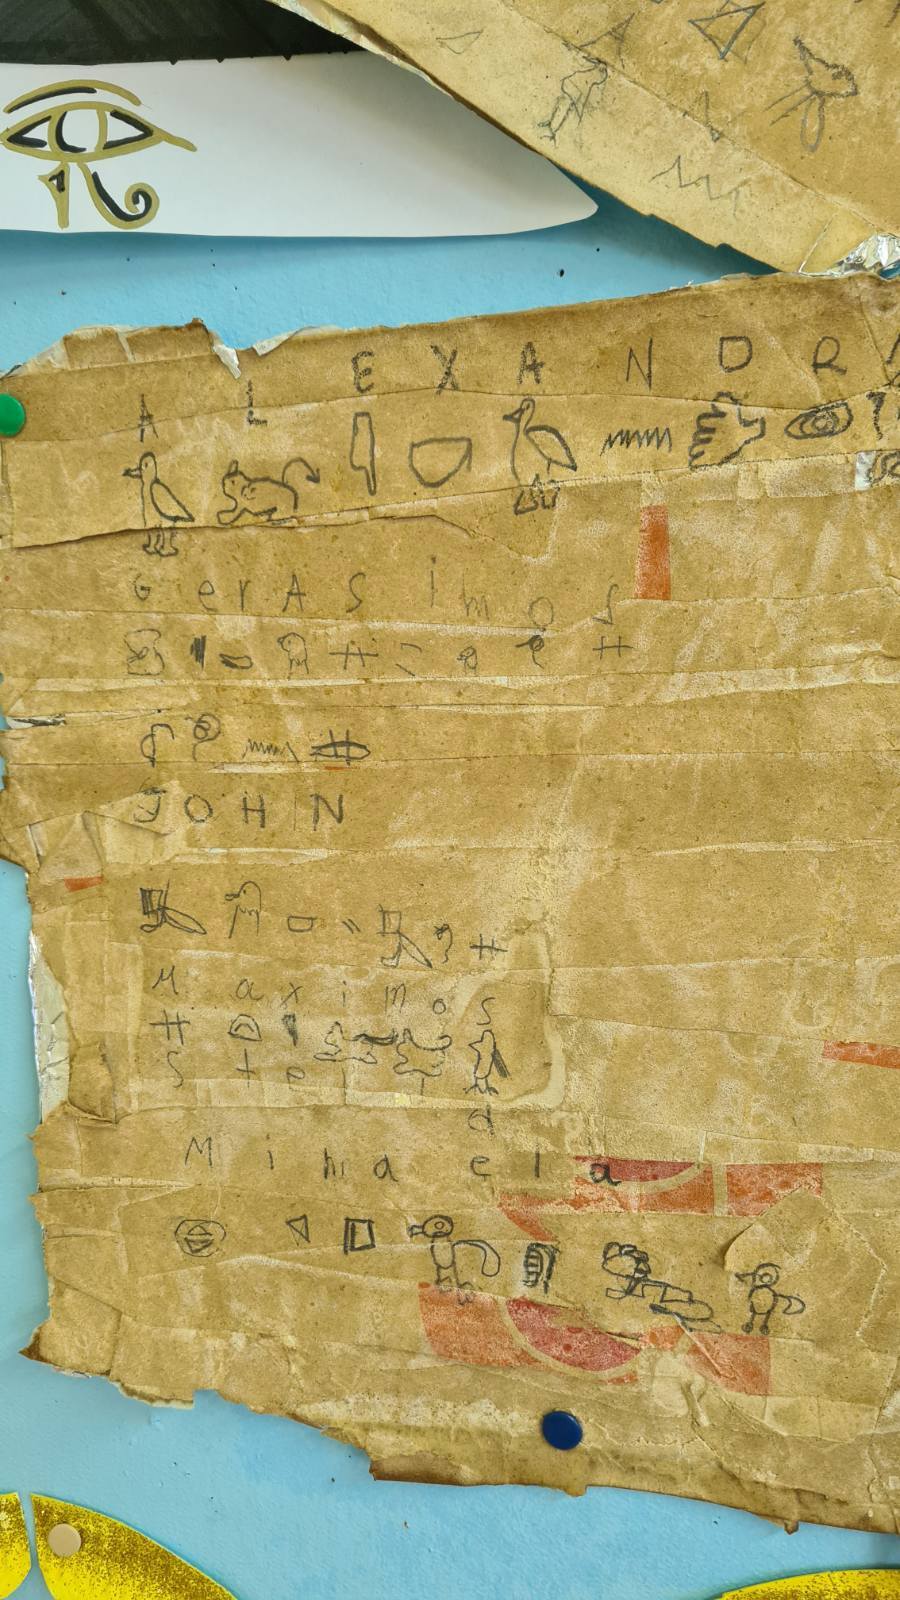 ALEXANDRA
GerASimos
JOHN
Maximos
Mihaela